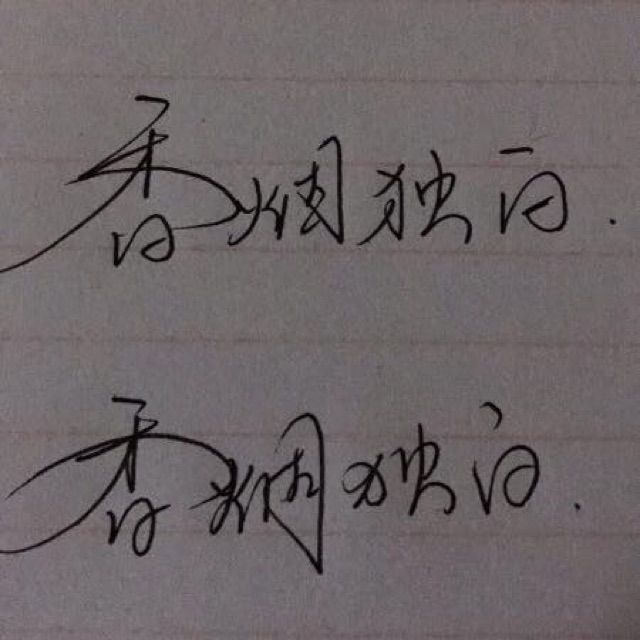 香烟独白.
香烟独白.